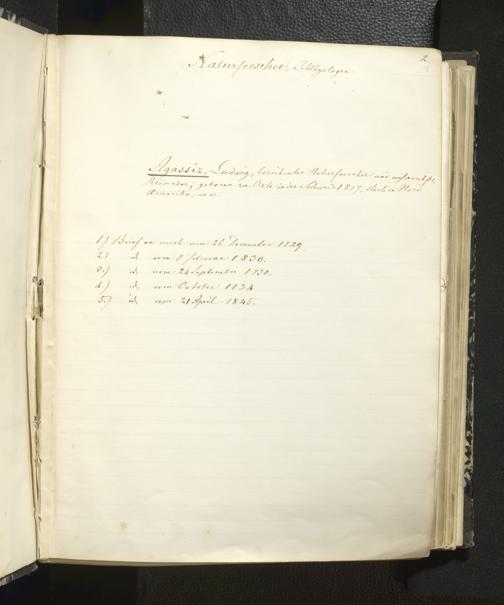 2
Naturforscher, Ichthyologen
Agassiz, Ludwig, berühmter Naturforscher und
Reisender, geboren zu Orbe in der Schweiz 1807, starb in Nord
Amerika,
1.) Brief an mich vom 26 December 1829
2.) id. vom 8 Februar 1830.
3.) id. vom 24 September 1830.
4.) id. vom October 1834
5.) id. vom 21 April 1845.